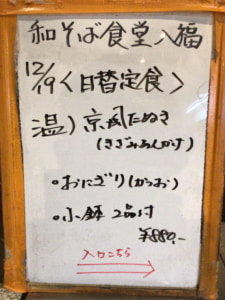 和そば食堂 八福
12/19 <日替定食>
温) 京風たぬき
(きざみあんかけ)
•おにぎり(かつお)
•小鉢 2品付
¥880.-
入口こちら